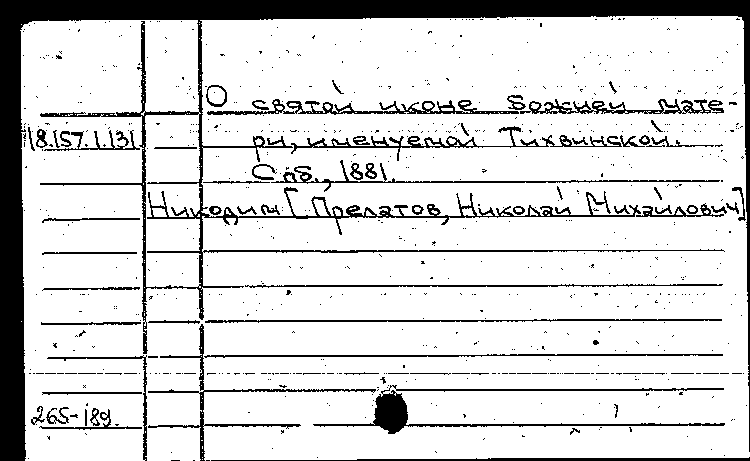 О святой иконе Божией мате-
18.157.1.131 ри, именуемой Тихвинской.
Спб., 1881.
Никодим [Прелатов, Николай Михайлович]
265-189.